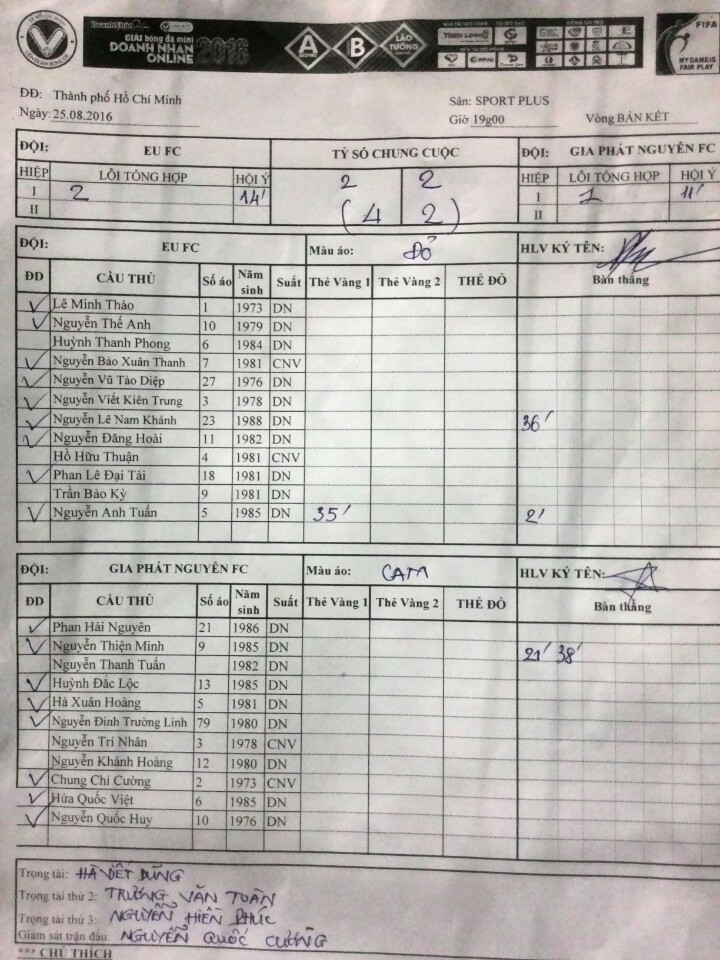 DoanhNhân
GIẢI bóng đá mini
DOANH NHÂN
ONLINE 2016
A B LÃO TƯỚNG
FIFA
MY GAME IS
FAIR PLAY
ĐĐ: Thành phố Hồ Chí Minh Sân: SPORT PLUS
Ngày: 25.08.2016 Giờ 19g00 Vòng BÁN KẾT
ĐỘI: EU FC TỶ SỐ CHUNG CUỘC ĐỘI: GIA PHÁT NGUYÊN FC
HIỆP LỖI TỔNG HỢP HỘI Ý 2 2 HIỆP LỖI TỔNG HỢP HỘI Ý
I 2 14' (4 2) I 1 11'
II II
ĐỘI: EU FC Màu áo: ĐỎ HLV KÝ TÊN:
ĐD CẦU THỦ Số áo Năm sinh Suất Thẻ Vàng 1 Thẻ Vàng 2 THẺ ĐỎ Bàn thắng
Lê Minh Thảo 1 1973 DN
Nguyễn Thế Anh 10 1979 DN
Huỳnh Thanh Phong 6 1984 DN
Nguyễn Bảo Xuân Thanh 7 1981 CNV
Nguyễn Vũ Tảo Diệp 27 1976 DN
Nguyễn Viết Kiên Trung 3 1978 DN
Nguyễn Lê Nam Khánh 23 1988 DN 36'
Nguyễn Đăng Hoài 11 1982 DN
Hồ Hữu Thuận 4 1981 CNV
Phan Lê Đại Tài 18 1981 DN
Trần Bảo Kỳ 9 1981 DN
Nguyễn Anh Tuấn 5 1985 DN 35' 2'
ĐỘI: GIA PHÁT NGUYÊN FC Màu áo: CAM HLV KÝ TÊN:
ĐD CẦU THỦ Số áo Năm sinh Suất Thẻ Vàng 1 Thẻ Vàng 2 THẺ ĐỎ Bàn thắng
Phan Hải Nguyên 21 1986 DN
Nguyễn Thiện Minh 9 1985 DN 21' 38'
Nguyễn Thanh Tuấn 1982 DN
Huỳnh Đắc Lộc 13 1985 DN
Hà Xuân Hoàng 5 1981 DN
Nguyễn Đình Trường Linh 79 1980 DN
Nguyễn Trí Nhân 3 1978 CNV
Nguyễn Khánh Hoàng 12 1980 DN
Chung Chí Cường 2 1973 CNV
Hứa Quốc Việt 6 1985 DN
Nguyễn Quốc Huy 10 1976 DN
Trọng tài: HÀ VIẾT DŨNG
Trọng tài thứ 2: TRƯƠNG VĂN TOÀN
Trọng tài thứ 3: NGUYỄN HIỀN PHÚC
Giám sát trận đấu: NGUYỄN QUỐC CƯỜNG
*** CHÚ THÍCH